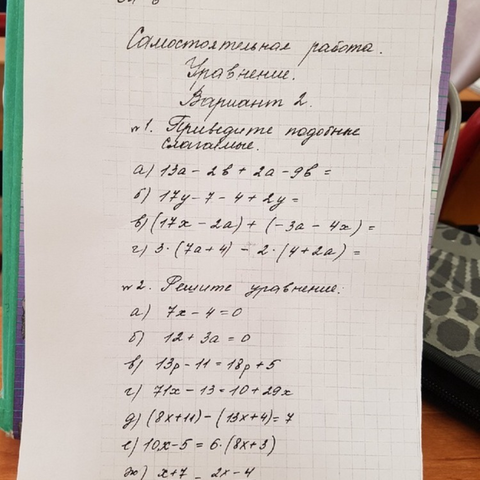 Самостоятельная работа.
Уравнение.
Вариант 2.
№1. Приведите подобные
слагаемые.
а) 13a - 2в + 2a - 9в =
б) 17y - 7 - 4 + 2y =
в) (17x - 2a) + (-3a - 4x) =
г) 3·(7a+4) - 2·(4+2a) =
№2. Решите уравнение:
а) 7x - 4 = 0
б) 12 + 3a = 0
в) 13p - 11 = 18p + 5
г) 71x - 13 = 10 + 29x
д) (8x+11) - (13x+4) = 7
е) 10x - 5 = 6·(8x+3)
ж) x+7 = 2x-4